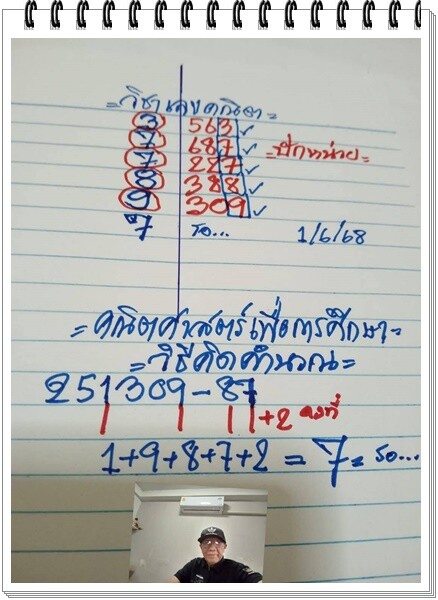 =วิชาเลขคณิต=
3 563 ✓
7 687 ✓
7 227 ✓ =ปักหน่วย=
8 388 ✓
9 309 ✓
7 รอ... 1/6/68
=คณิตศาสตร์เพื่อการศึกษา=
=วิธีคิดคำนวณ=
251309-87
+2 คงที่
1+9+8+7+2 = 7= รอ...